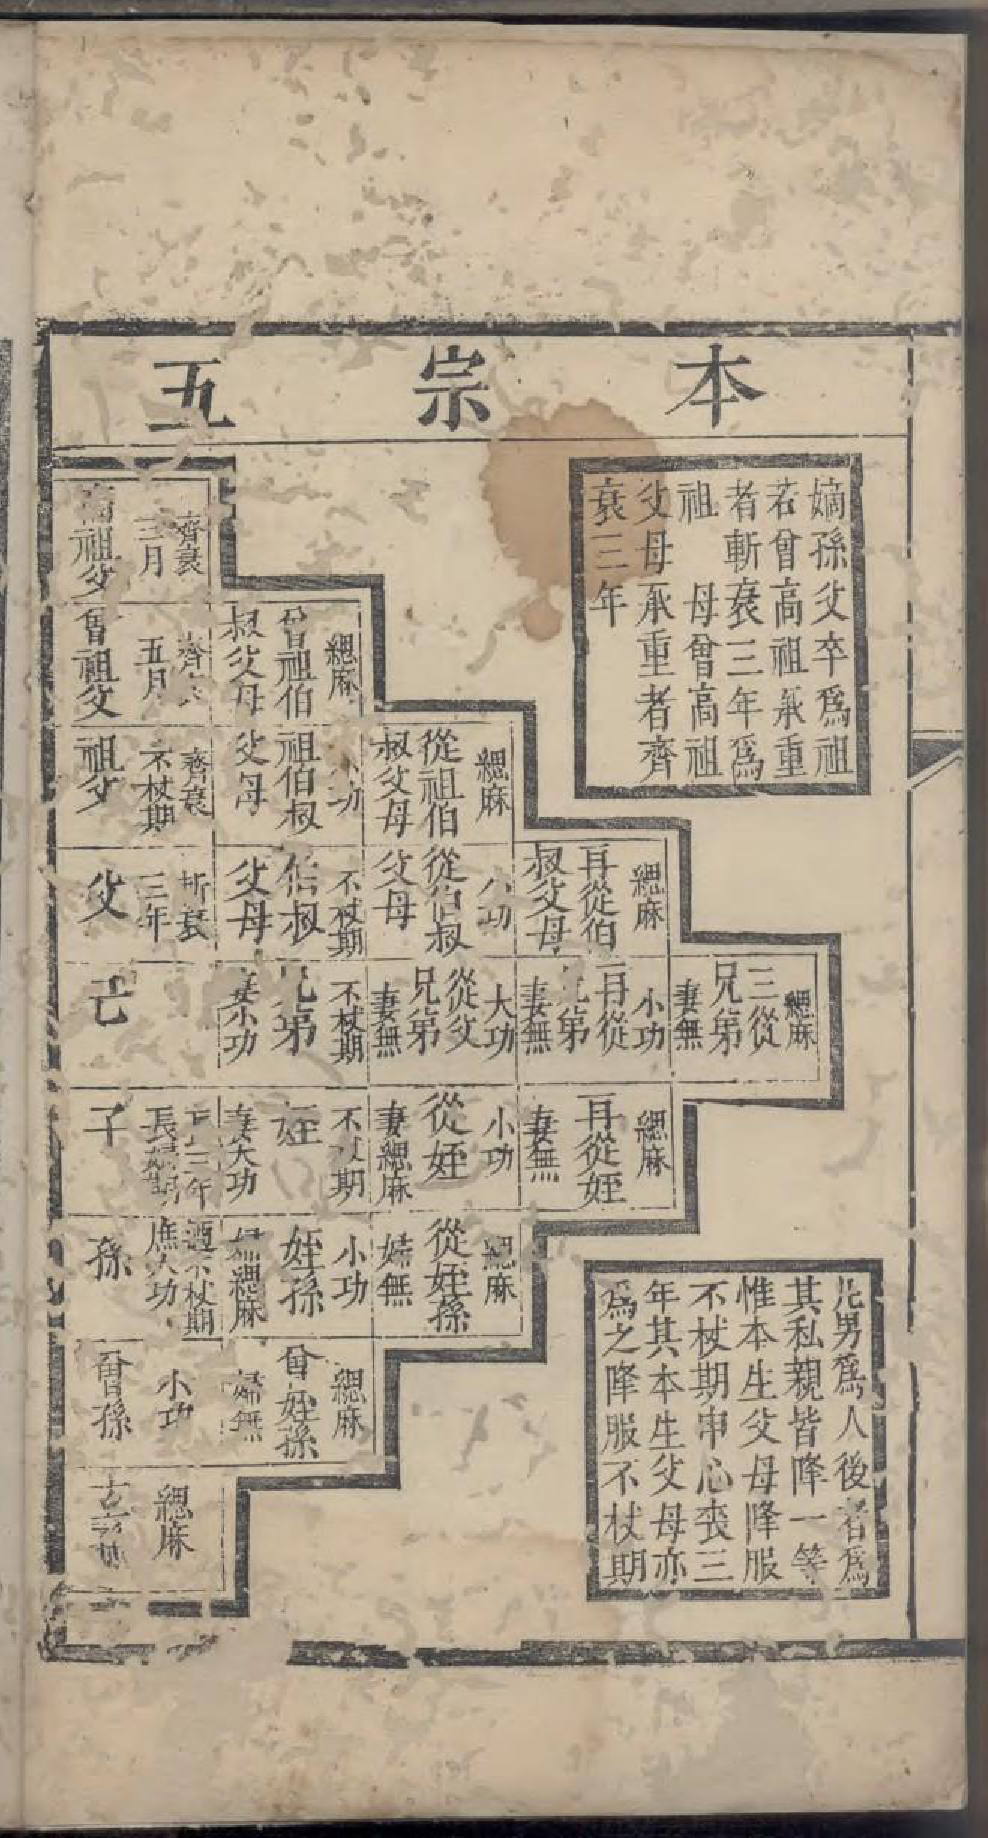 本宗五
嫡孫父卒爲祖
若曾高祖承重
者斬衰三年爲
祖 母曾高祖
父母承重者齊
衰三年
齊衰
三月
高祖父
緦麻
曾祖伯
叔父母
齊
五月
曾祖父
緦麻
從祖伯
叔父母
功
祖伯叔
父母
齊衰
不杖期
祖父
緦麻
再從伯
叔父母
小功
從伯叔
父母
不杖期
伯叔
父母
斬衰
三年
父
緦麻
三從
兄弟
妻無
小功
再從
兄弟
妻無
大功
從父
兄弟
妻無
不杖期
兄弟
妻小功
己
緦麻
再從姪
妻無
小功
從姪
妻緦麻
不杖期
姪
妻大功
三年
長婦期
子
緦麻
從姪孫
婦無
小功
姪孫
婦緦麻
適不杖期
庶大功
孫
緦麻
曾姪孫
婦無
小功
曾孫
緦麻
玄孫
凡男爲人後者爲
其私親皆降一等
惟本生父母降服
不杖期申心喪三
年其本生父母亦
爲之降服不杖期